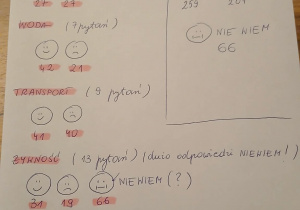 27 27
259 201
WODA (7 pytań)
42 21
NIE WIEM
66
TRANSPORT (9 pytań)
41 40
ŻYWNOŚĆ (13 pytań) (dużo odpowiedzi NIEWIEM!)
NIEWIEM (?)
31 19 66